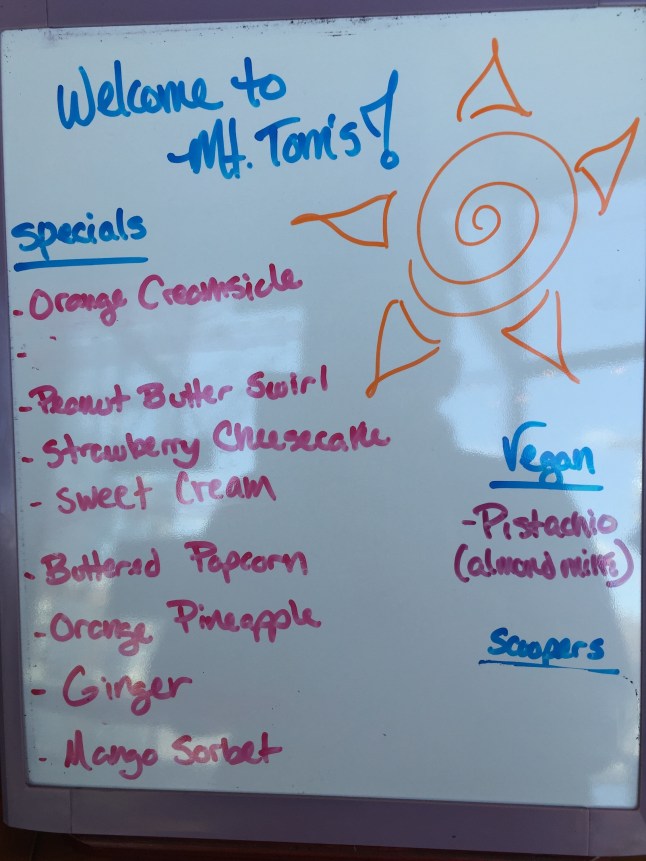 Welcome to
Mt. Tom's!
Specials
- Orange Creamsicle
-
- Peanut Butter Swirl
- Strawberry Cheesecake
- Sweet Cream
- Buttered Popcorn
- Orange Pineapple
- Ginger
- Mango Sorbet
Vegan
- Pistachio
(almond milk)
Scoopers